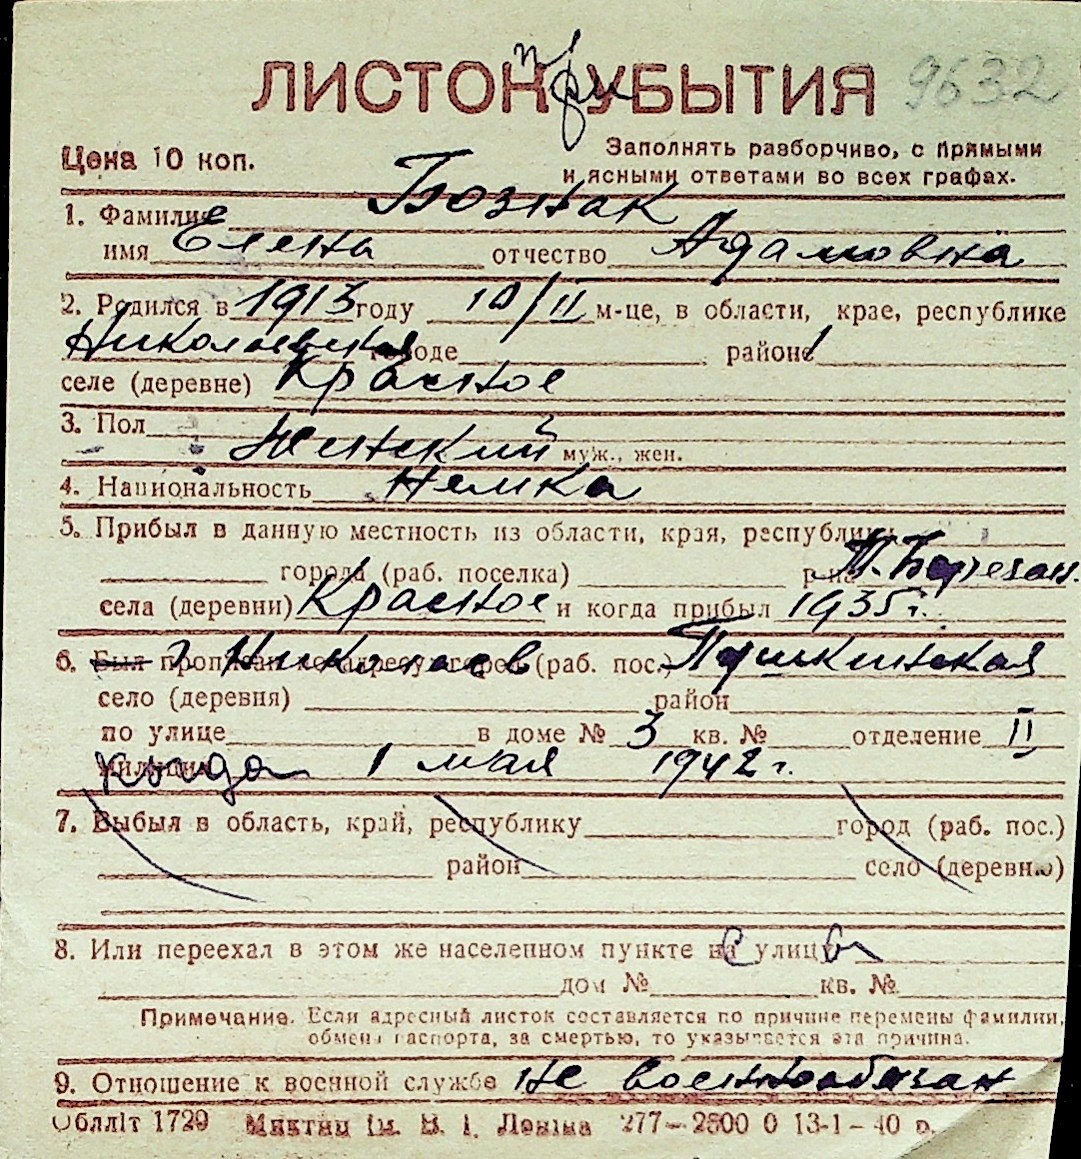 ЛИСТОК при УБЫТИЯ 9632
Цена 10 коп. Заполнять разборчиво, с прямыми
и ясными ответами во всех графах.
1. Фамилия Бознак
имя Елена отчество Адамовна
2. Родился в 1913 году 10/II м-це, в области, крае, республике
Николаевская городе районе
селе (деревне) Красное
3. Пол Женский муж., жен.
4. Национальность Немка
5. Прибыл в данную местность из области, края, республики
города (раб. поселка) р-на Т. Березан.
села (деревни) Красное и когда прибыл 1935 г.
6. Был прописан по адресу: город г. Николаев (раб. пос.) Пушкинская
село (деревня) район
по улице в доме № 3 кв. № отделение II
милиции когда 1 мая 1942 г.
7. Выбыл в область, край, республику город (раб. пос.)
район село (деревню)
8. Или переехал в этом же населенном пункте с улицы
дом № кв. №
Примечание. Если адресный листок составляется по причине перемены фамилии,
обмена паспорта, за смертью, то указывается эта причина.
9. Отношение к военной службе не военнообязан
Облліт 1729 Миктип ім. В. І. Леніна 277—2500 0 13-1-40 р.